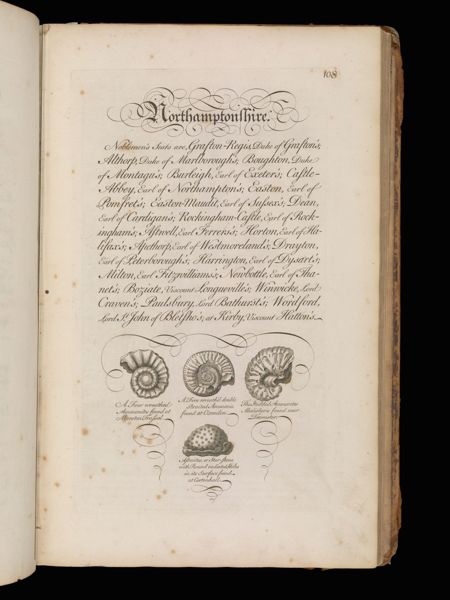 108
Northamptonshire.
Noblemen's Seats are, Grafton-Regis, Duke of Grafton's;
Althorp, Duke of Marlborough's; Boughton, Duke
of Montagu's; Burleigh, Earl of Exeter's; Castle-
Abbey, Earl of Northampton's; Easton, Earl of
Pomfret's; Easton-Maudit, Earl of Sussex's; Dean,
Earl of Cardigan's; Rockingham-Castle, Earl of Rock-
ingham's; Astwell, Earl Ferrers's; Horton, Earl of Ha-
lifax's; Apethorp, Earl of Westmoreland's; Drayton,
Earl of Peterborough's; Harrington, Earl of Dysart's;
Milton, Earl Fitzwilliams's; Newbottle, Earl of Tha-
net's; Boziate, Viscount Longueville's; Winwicke, Lord
Craven's; Paulsbury, Lord Bathurst's; Wordford,
Lord St. John of Bletsho's; at Kirby, Viscount Hatton's.
A Four wreathed
Ammonites found at
A Five wreath'd double
Striated Ammonis
found at
The Studded Ammonites
found near
Towcester.
Astroites, or Star-stone
with Round radiated Holes
in its Surface found
at